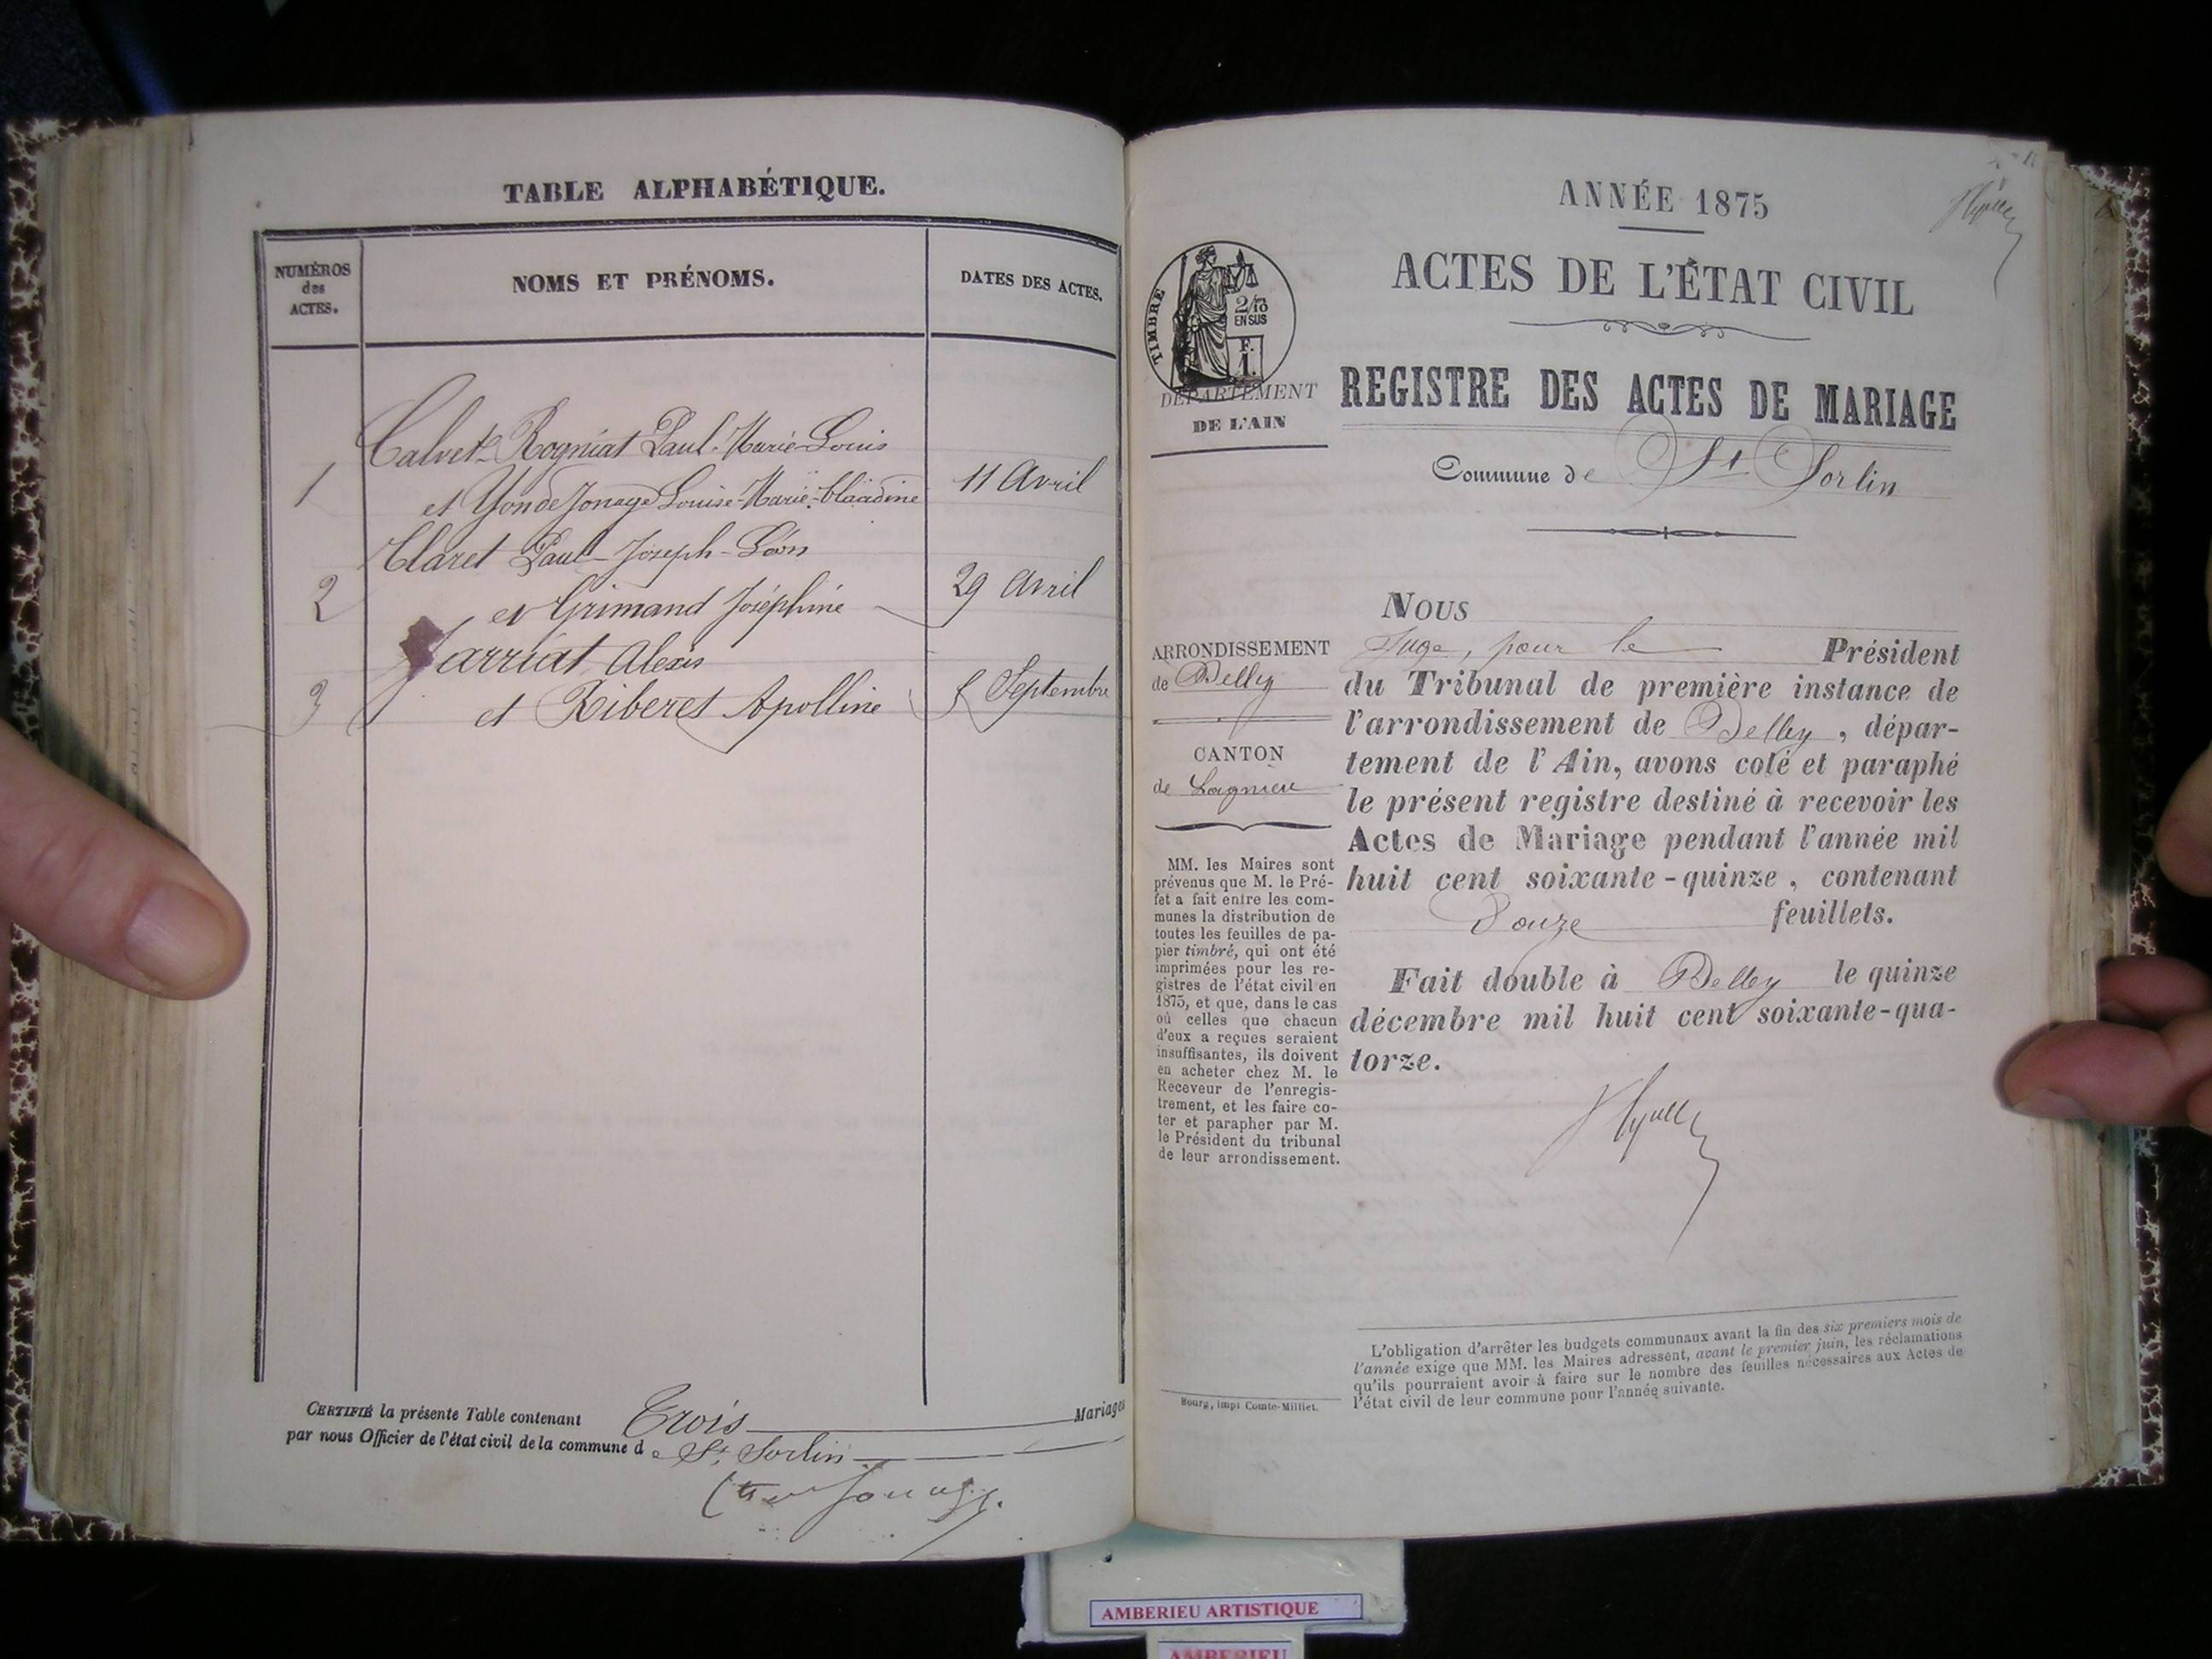 TABLE ALPHABÉTIQUE.
NUMÉROS
des
ACTES.
NOMS ET PRÉNOMS.
DATES DES ACTES.
Calvet-Rogniat Paul-Marie-Louis
1 et Yon de Jonage Louise-Marie-Claudine 11 Avril
Claret Paul-Joseph-Léon
2 et Grimand Joséphine 29 Avril
Jarriat Alexis
3 et Riberet Apolline 5 Septembre
CERTIFIÉ la présente Table contenant Trois Mariages
par nous Officier de l'état civil de la commune de St Sorlin
Jonage
ANNÉE 1875
ACTES DE L'ÉTAT CIVIL
TIMBRE
2/10
EN SUS
F.
1.
DÉPARTEMENT
DE L'AIN
REGISTRE DES ACTES DE MARIAGE
Commune de St Sorlin
ARRONDISSEMENT
de Belley
CANTON
de Lagnieu
MM. les Maires sont
prévenus que M. le Pré-
fet a fait entre les com-
munes la distribution de
toutes les feuilles de pa-
pier timbré, qui ont été
imprimées pour les re-
gistres de l'état civil en
1875, et que, dans le cas
où celles que chacun
d'eux a reçues seraient
insuffisantes, ils doivent
en acheter chez M. le
Receveur de l'enregis-
trement, et les faire co-
ter et parapher par M.
le Président du tribunal
de leur arrondissement.
Bourg, impr Comte-Milliet.
NOUS
Juge, pour le Président
du Tribunal de première instance de
l'arrondissement de Belley, dépar-
tement de l'Ain, avons coté et paraphé
le présent registre destiné à recevoir les
Actes de Mariage pendant l'année mil
huit cent soixante-quinze, contenant
Douze feuillets.
Fait double à Belley le quinze
décembre mil huit cent soixante-qua-
torze.
L'obligation d'arrêter les budgets communaux avant la fin des six premiers mois de
l'année exige que MM. les Maires adressent, avant le premier juin, les réclamations
qu'ils pourraient avoir à faire sur le nombre des feuilles nécessaires aux Actes de
l'état civil de leur commune pour l'année suivante.
AMBERIEU ARTISTIQUE
AMBERIEU